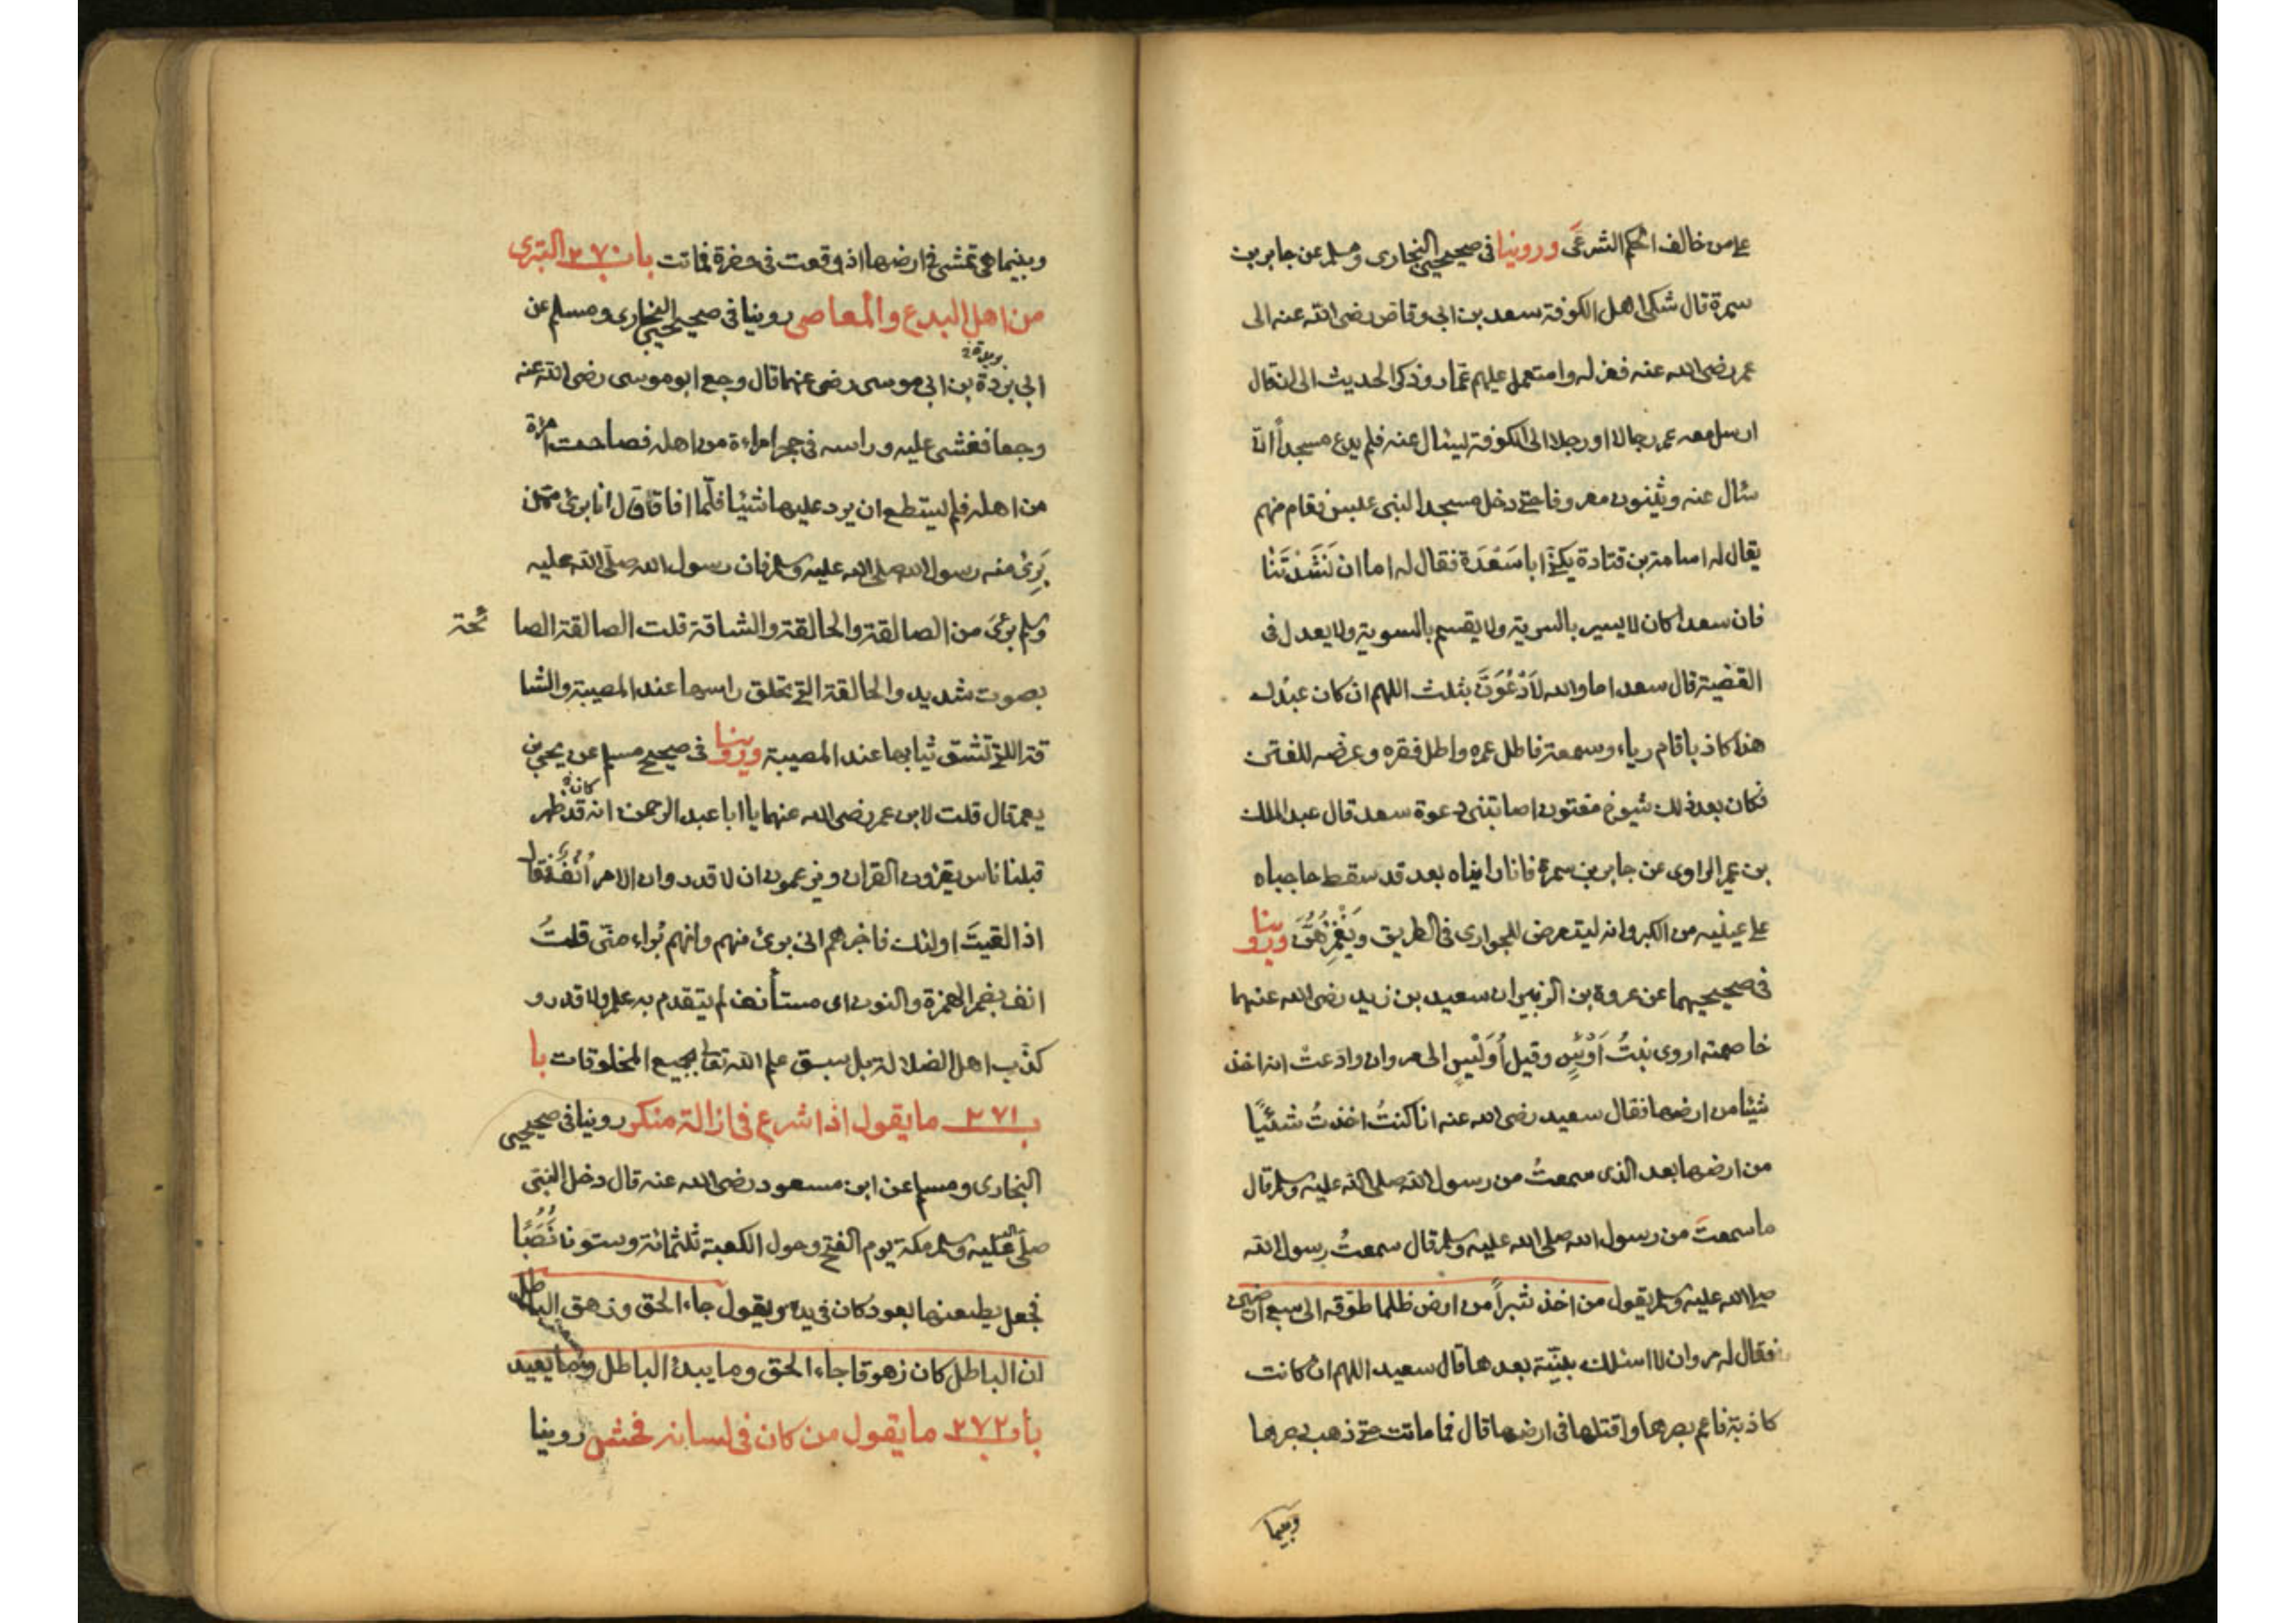 على من خالف الحكم الشرعى وروينا فى صحيحى البخارى ومسلم عن جابر بن
سمرة قال شكى اهل الكوفة سعد بن ابى وقاص رضى الله عنه الى
عمر رضى الله عنه فعزله واستعمل عليهم عمار وذكر الحديث الى ان قال
ارسل معه عمر رجالا او رجلا الى الكوفة ليسال عنه فلم يدع مسجداً الا
سال عنه ويثنون معروفا حتى دخل مسجدا لبنى عبس فقام منهم
يقال له اسامة بن قتادة يكنى اباسَعْدَة فقال له اما ان نَشَدْتَنَا
فان سعدا كان لا يسير بالسرية ولا يقسم بالسوية ولا يعدل فى
القضية قال سعد اما والله لَاَدْعُوَنَّ بثلث اللهم ان كان عبدك
هذا كاذبا قام رياء وسمعة فاطل عمره واطل فقره وعرضه للفتن
فكان بعد ذلك شيوخ مفتون اصابتنى دعوة سعد قال عبد الملك
بن عمير الراوى عن جابر بن سمرة فانا رايناه بعد قد سقط حاجباه
على عينيه من الكبر وانه ليتعرض للجوارى فى الطريق ويَغْمِزُهُنَّ وروينا
فى صحيحيهما عن عروة بن الزبير ان سعيد بن زيد رضى الله عنهما
خاصمته اروى بنتُ اَوْسٍ وقيل اُوَيْسٍ الى مروان وادعتْ انه اخذ
شيئا من ارضها فقال سعيد رضى الله عنه انا كنتُ اخذتُ شيئًا
من ارضها بعد الذى سمعتُ من رسول الله صلى الله عليه وسلم قال
ما سمعتَ من رسول الله صلى الله عليه وسلم قال سمعتُ رسول الله
صلى الله عليه وسلم يقول من اخذ شبراً من ارض ظلما طوقه الى سبع ارضين
فقال له مروان لا اسئلك بينة بعد هذا قال سعيد اللهم ان كانت
كاذبة فاعم بصرها واقتلها فى ارضها قال فما ماتت حتى ذهب بصرها
وبينما
وبينما هى تمشى فى ارضها اذ وقعت فى حفرة فماتت باب ٢٧٠ التبرى
من اهل البدع والمعاصى روينا فى صحيحى البخارى ومسلم عن
ابى بردة بن ابى موسى رضى عنهما قال وجع ابو موسى رضى الله عنه
وجعا فغشى عليه وراسه فى حجر امراءة من اهله فصاحت امراة
من اهله فلم يستطع ان يرد عليها شيئا فلما افاق قال انا برئ ممن
بَرِئ منه رسول الله صلى الله عليه وسلم فان رسول الله صلى الله عليه
وسلم برئ من الصالقة والحالقة والشاقة قلت الصالقة الصا ئحة
بصوت شديد والحالقة التى تحلق راسها عند المصيبة والشا
قة اللتى تشق ثيابها عند المصيبة وروينا فى صحيح مسلم عن يحيى بن
يعمر قال قلت لابن عمر رضى الله عنهما يا ابا عبد الرحمن انه قد ظهر
قبلنا ناس يقرؤن القران ويزعمون ان لا قدر وان الامر اُنُفٌ فقال
اذا لقيتَ اولئك فاخبرهم انى برئ منهم وانهم بُراء منّى قلتُ
انف بضم الهمزة والنون اى مستأنف لم يتقدم به علم ولا قدر و
كذّب اهل الضلالة بل سبق علم الله تعالى بجميع المخلوقات با
ب ٢٧١ ما يقول اذا شرع فى ازالة منكر روينا فى صحيحى
البخارى ومسلم عن ابن مسعود رضى الله عنه قال دخل النبى
صلى الله عليه وسلم مكة يوم الفتح وحول الكعبة ثلثمائة وستون نُصُبًا
فجعل يطعنها بعود كان فى يده ويقول جاء الحق وزهق الباطل
ان الباطل كان زهوقا جاء الحق وما يبدئ الباطل وما يعيد
باب ٢٧٢ ما يقول من كان فى لسانه فحش روينا